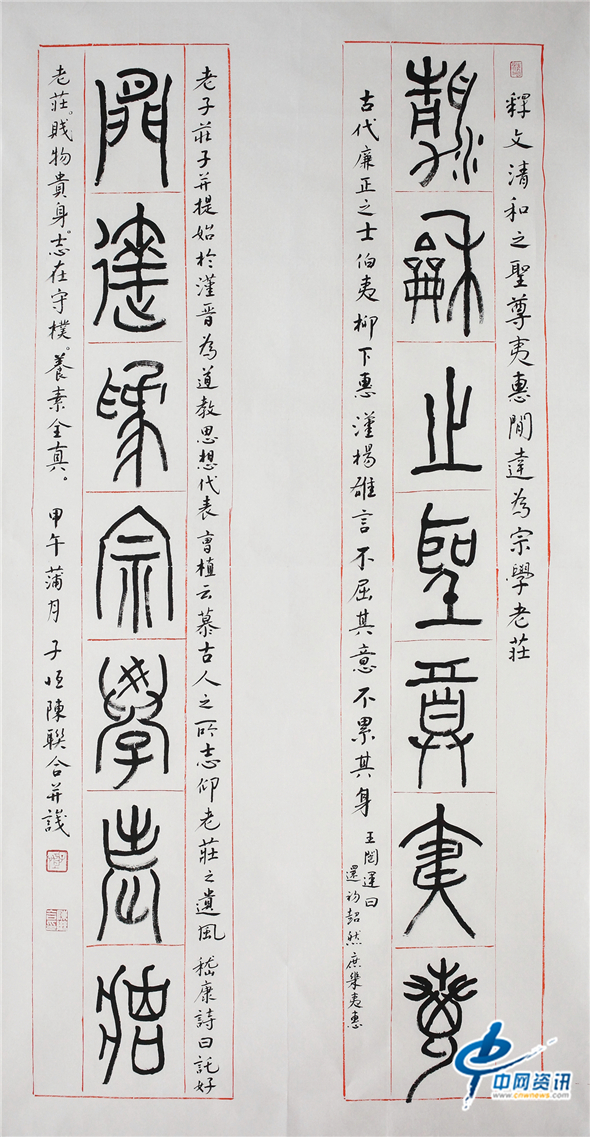 釋文清和之聖尊夷惠閒達為宗學老莊
清和之聖尊夷惠
古代廉正之士伯夷柳下惠漢楊雄言不屈其意不累其身
王闓運曰
還初然庶樂夷惠
老子莊子并提始於漢晉為道教思想代表曹植云慕古人之所志仰老莊之遺風嵇康詩曰託好
閒達為宗學老莊
老莊。賤物貴身。志在守樸。養素全真。甲午蒲月子恆陳聯合并識
中网资讯
www.cnwnews.com